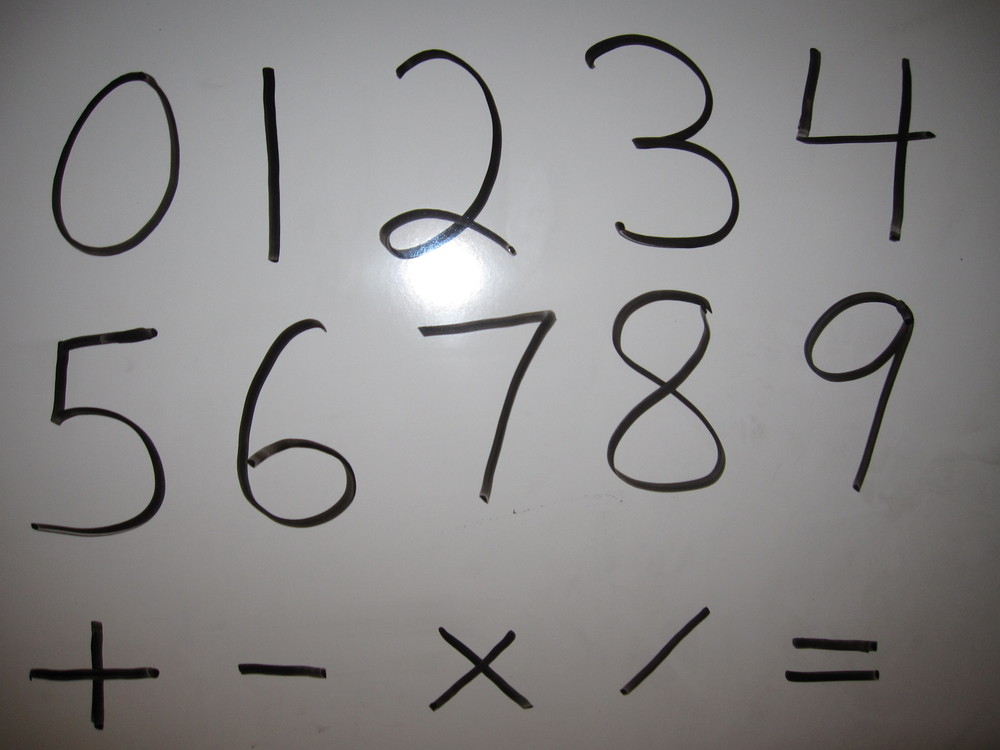 0 1 2 3 4
5 6 7 8 9
+ - × / =